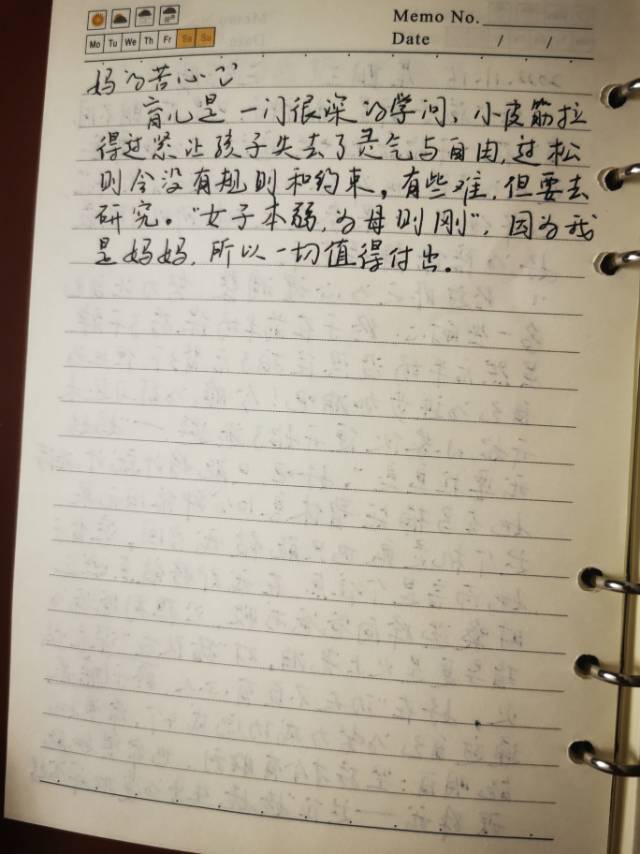 Memo No.
Mo Tu We Th Fr Sa Su
Date / /
妈的苦心
育儿是一门很深的学问，小皮筋拉
得过紧让孩子失去了灵气与自由，过松
则令没有规则和约束，有些难，但要去
研究。“女子本弱，为母则刚”，因为我
是妈妈，所以一切值得付出。